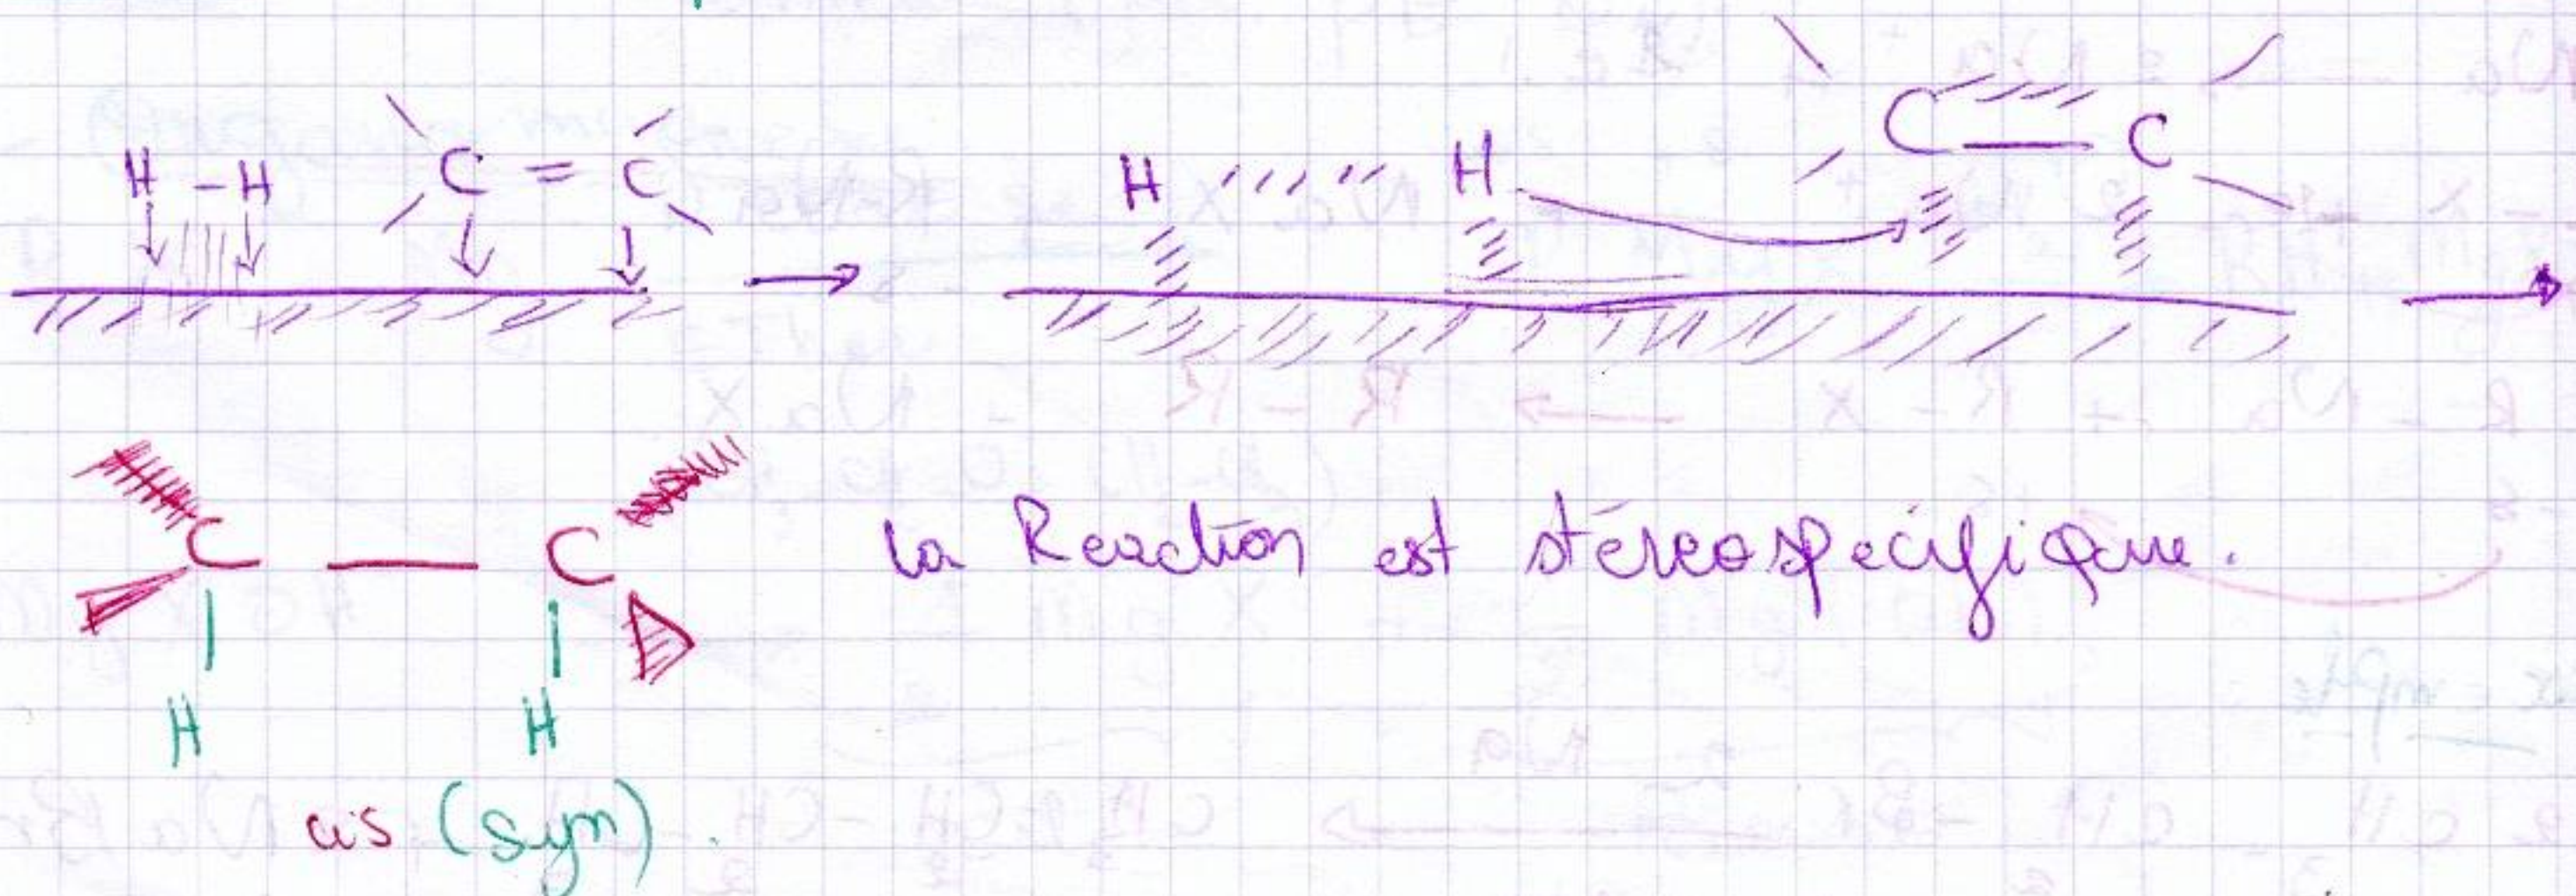 H - H C = C → H H C — C →
C — C la Reaction est stéreospécifique.
H H
cis (syn).